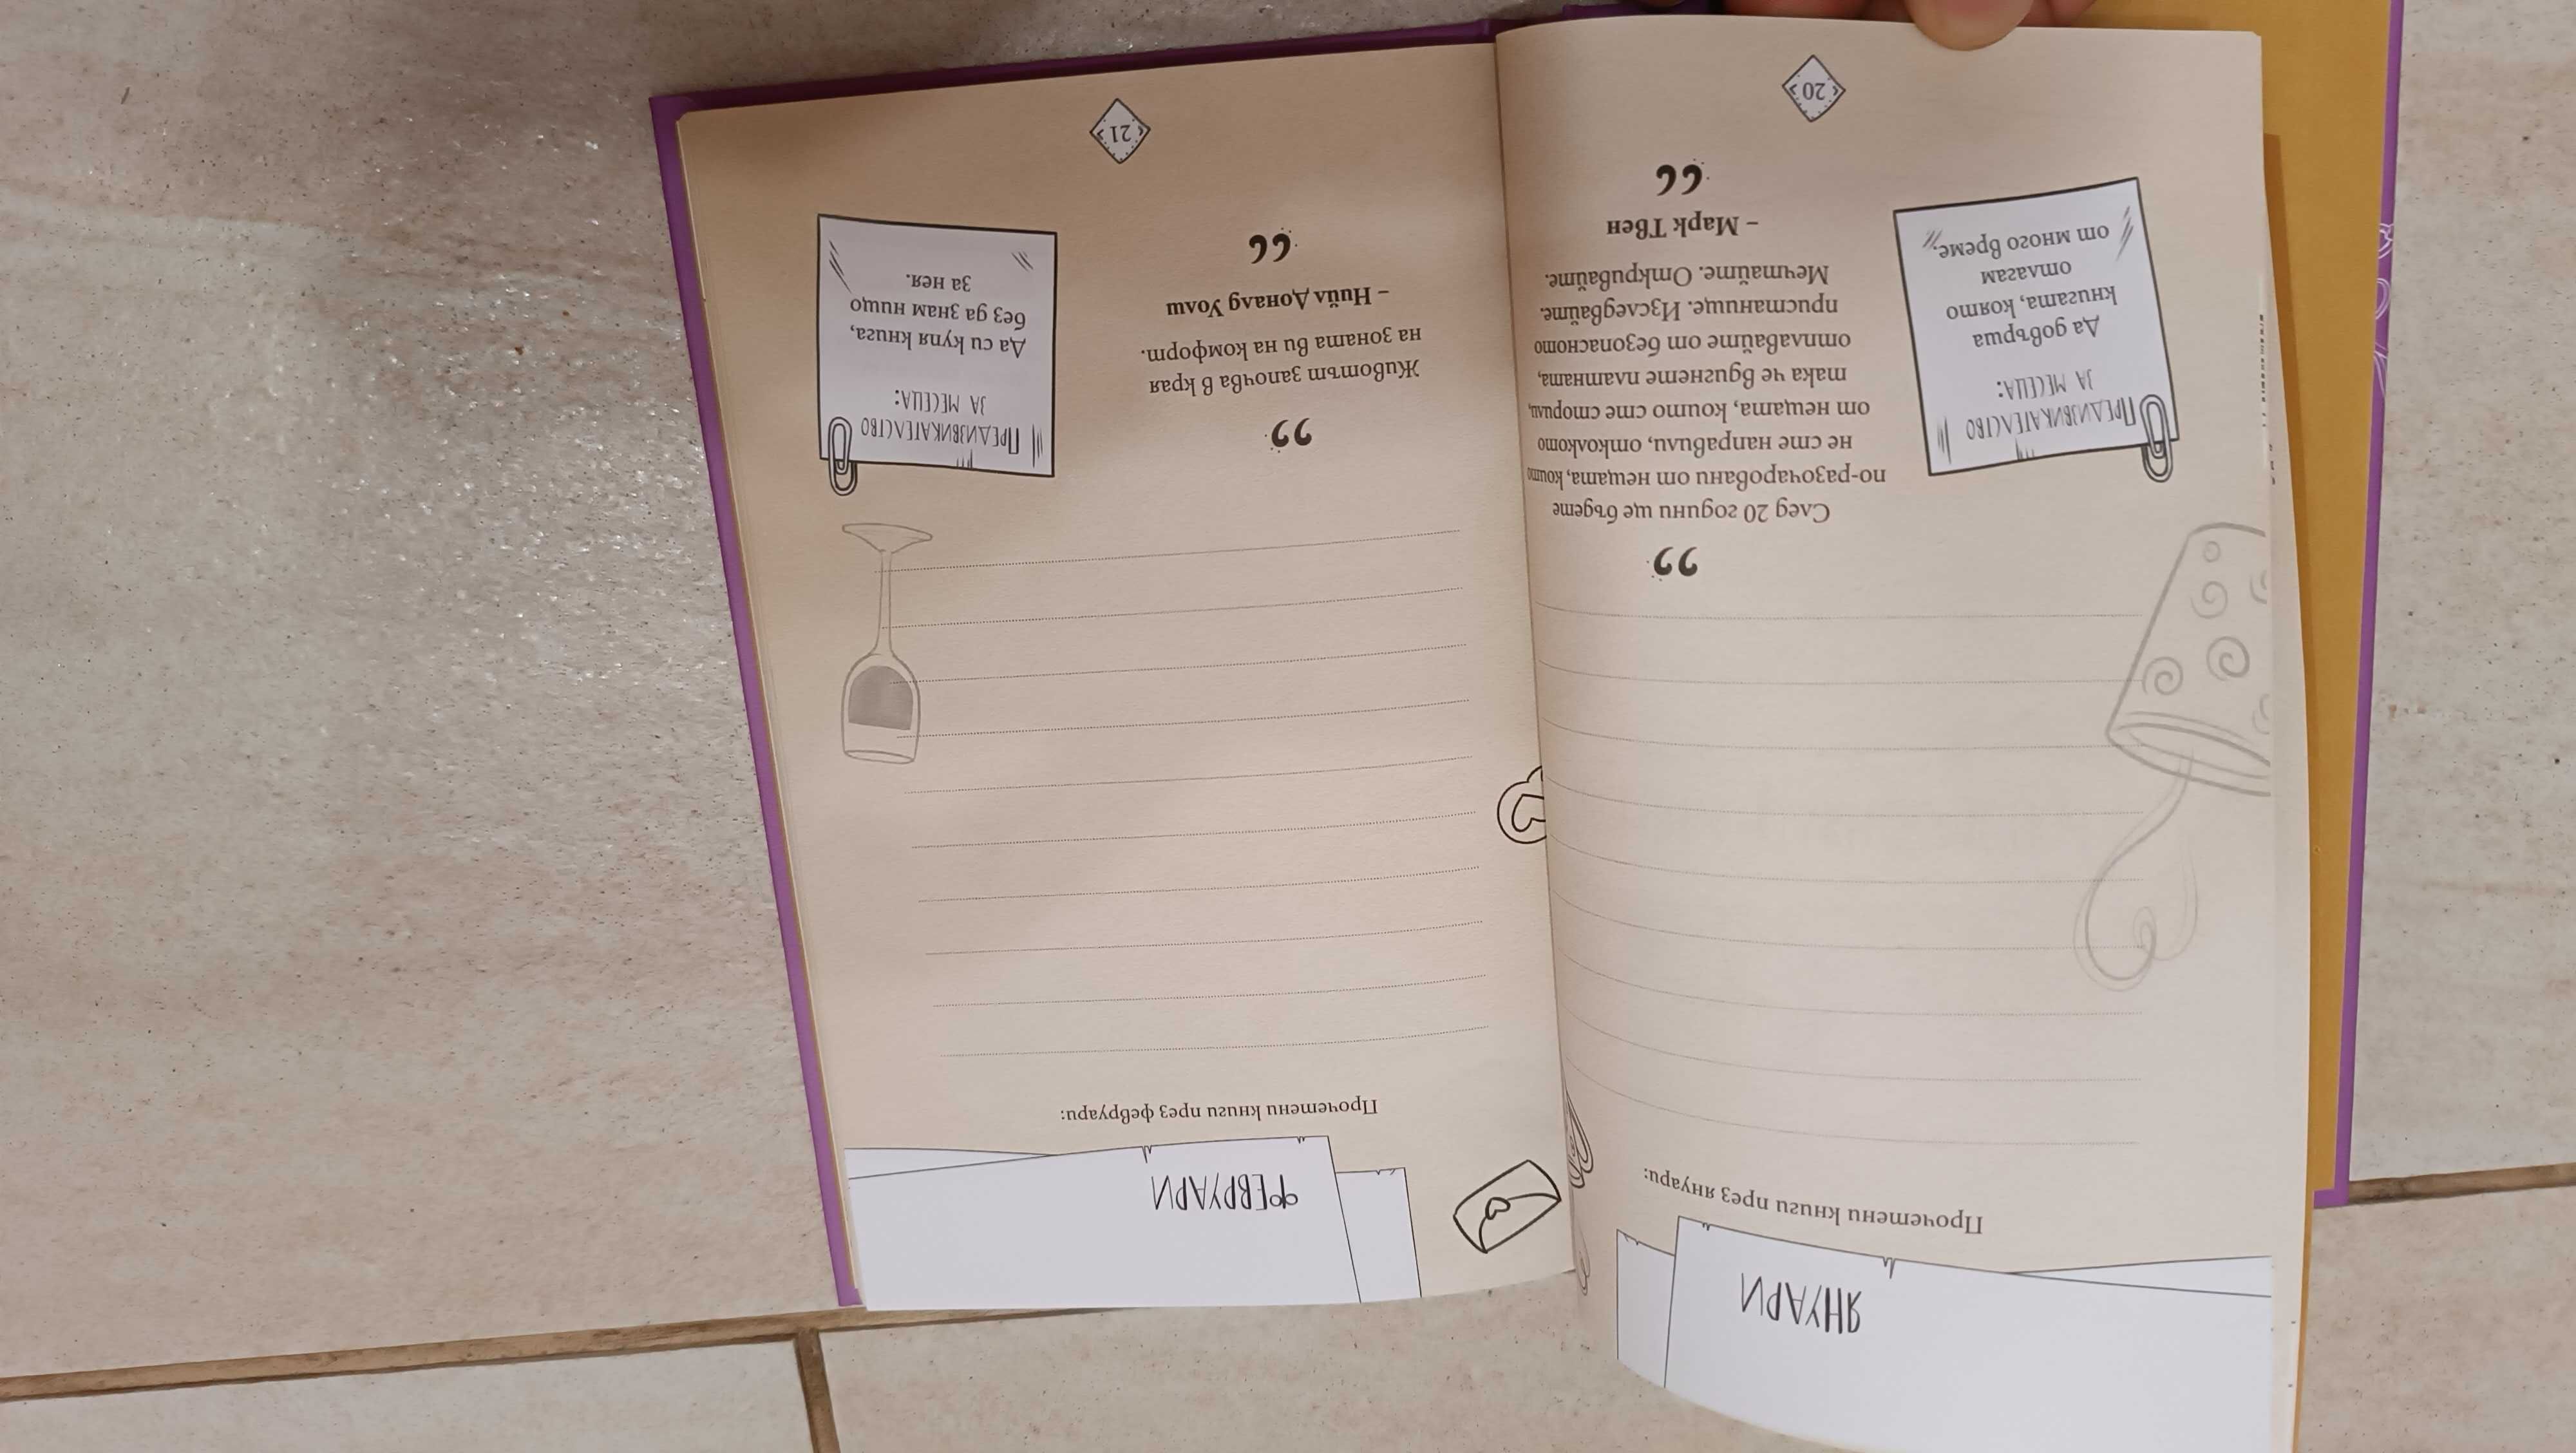 ЯНУАРИ
Прочетени книги през януари:
След 20 години ще бъдете
по-разочаровани от нещата, които
не сте направили, отколкото
от нещата, които сте сторили,
така че вдигнете платната,
отплавайте от безопасното
пристанище. Изследвайте.
Мечтайте. Откривайте.
– Марк Твен
ПРЕДИЗВИКАТЕЛСТВО
ЗА МЕСЕЦА:
Да довърша
книгата, която
отлагам
от много време.
20
ФЕВРУАРИ
Прочетени книги през февруари:
Животът започва в края
на зоната ви на комфорт.
– Нийл Доналд Уолш
ПРЕДИЗВИКАТЕЛСТВО
ЗА МЕСЕЦА:
Да си купя книга,
без да знам нищо
за нея.
21